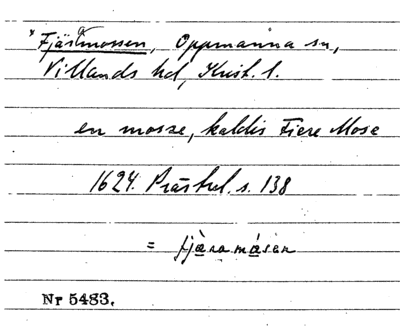 *Fjärmossen, Oppmanna sn,
Villands hd, Krist. l.
en mosse, kaldis Fiere Mose
1624. Prästrel. s. 138
= fjäramåsen
Nr 5483.